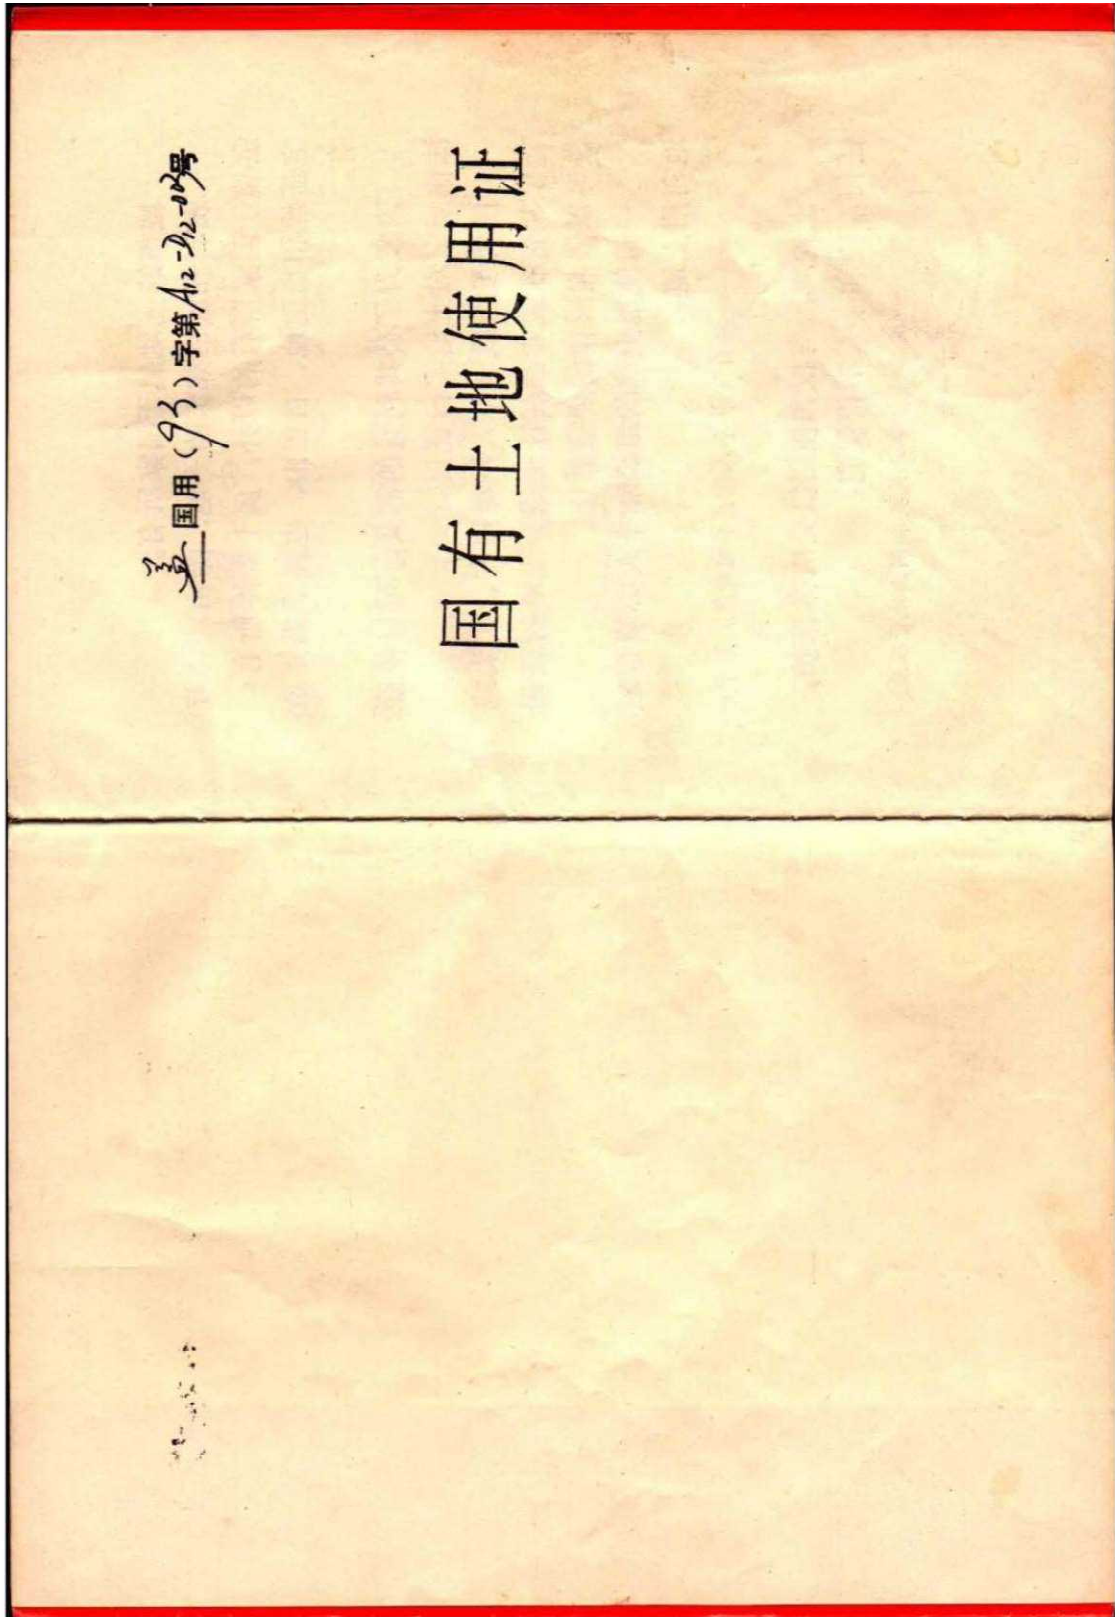 盖国用(93)字第A12-D12-02号
国有土地使用证